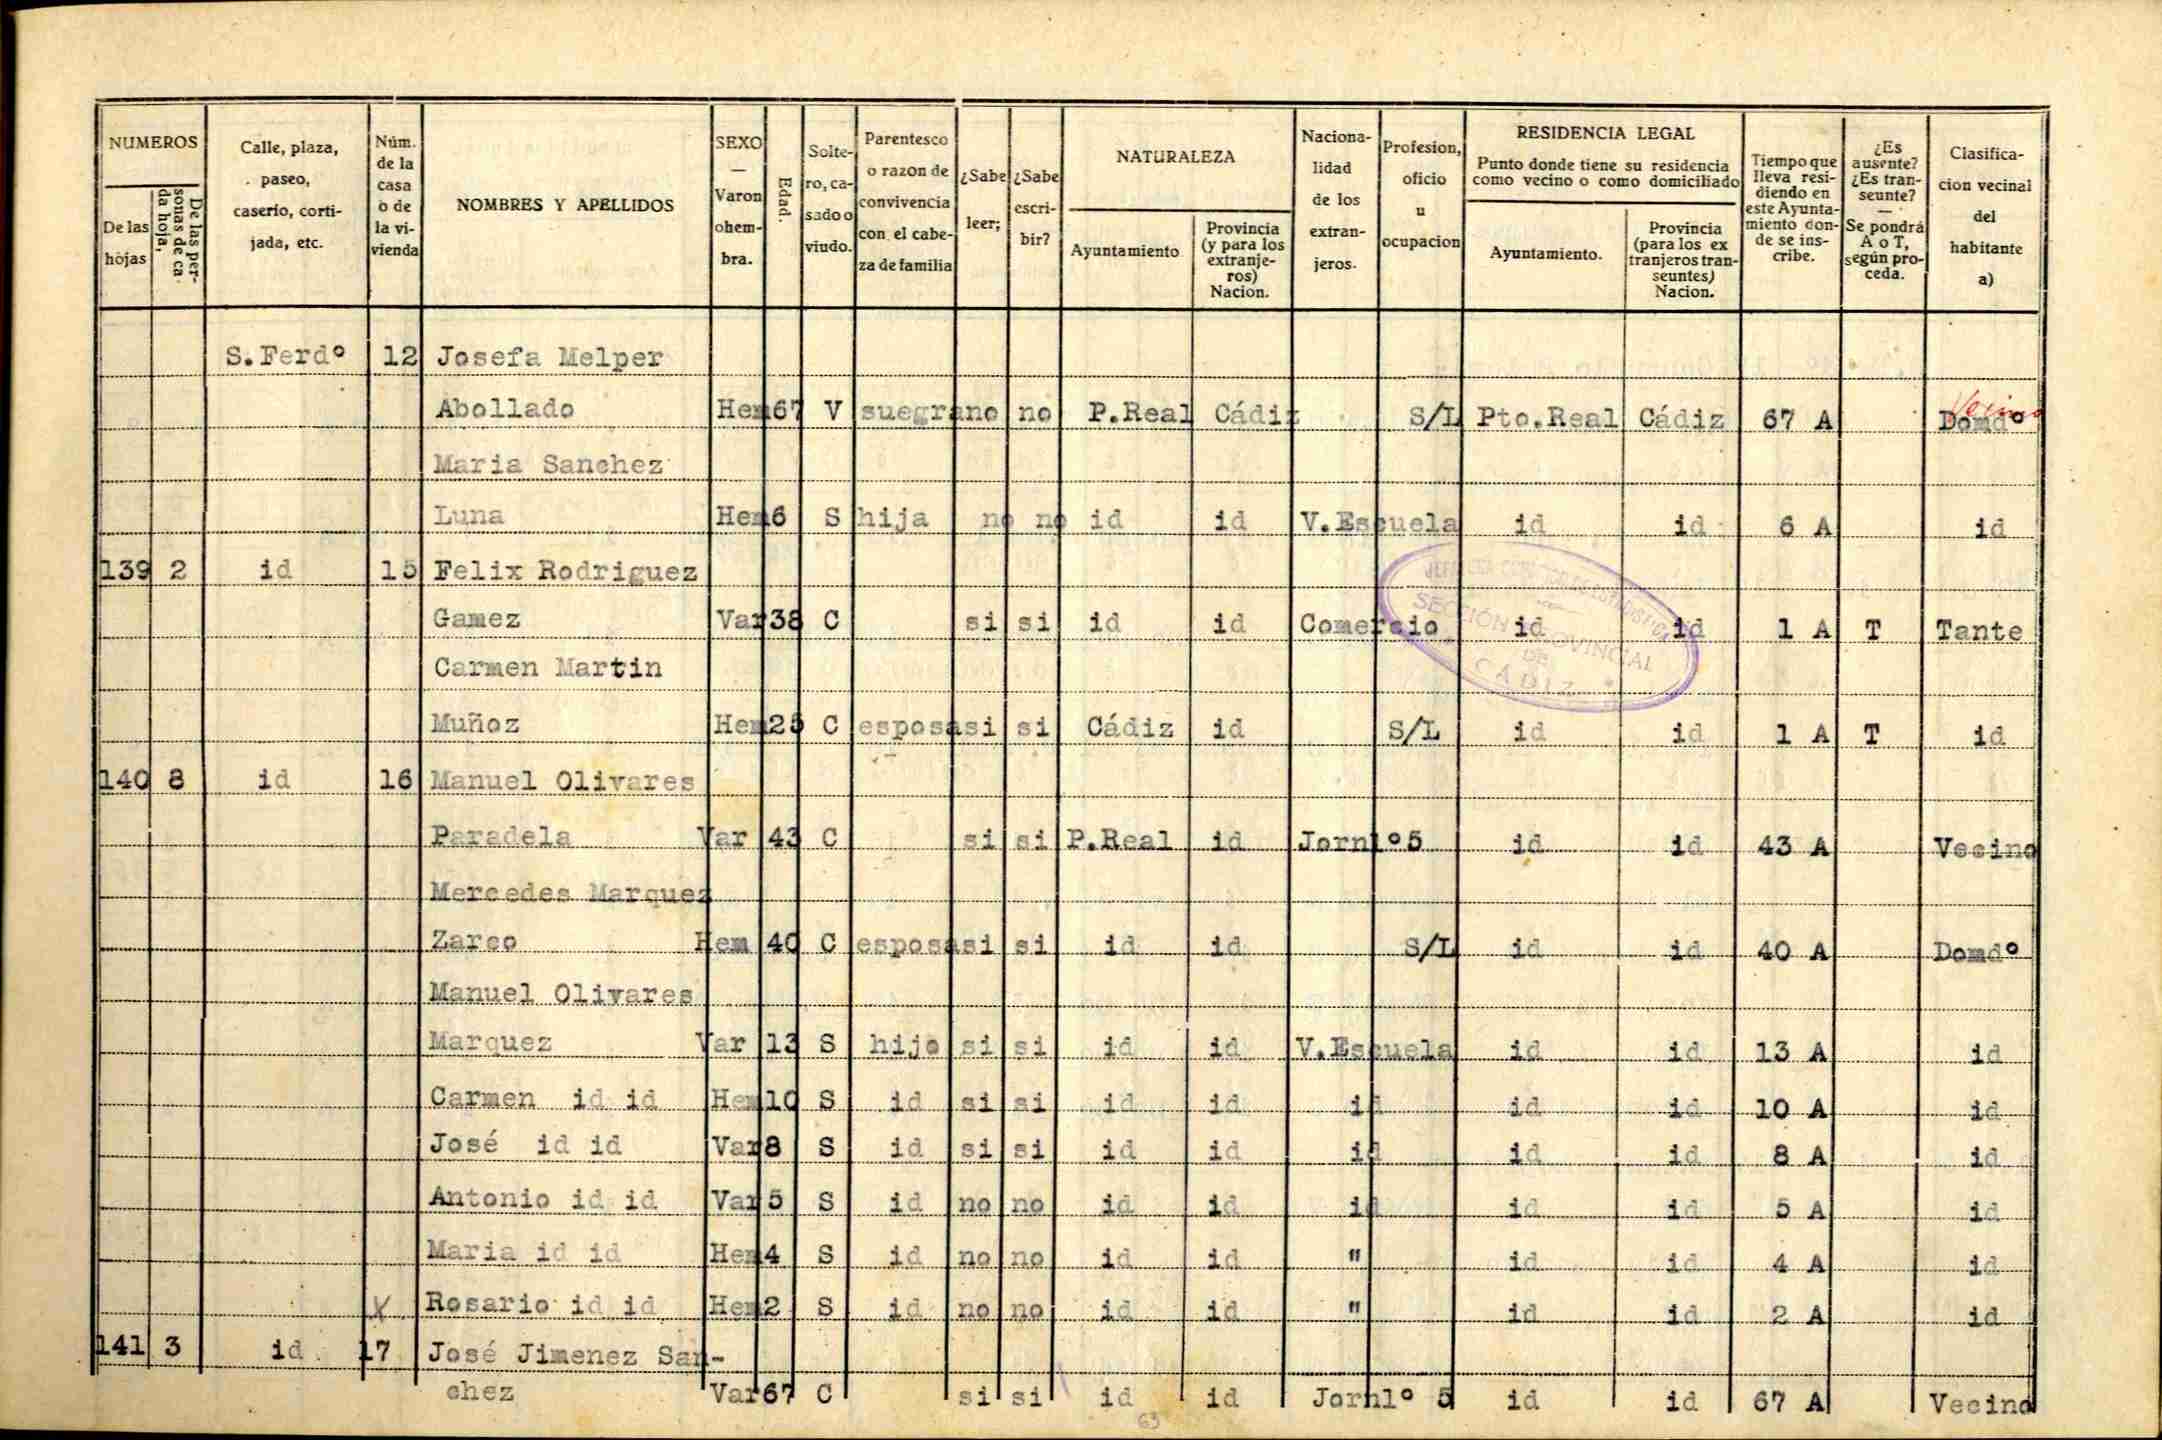 NUMEROS
De las hojas
De las personas de cada hoja,
Calle, plaza, paseo, caserio, cortijada, etc.
Núm. de la casa o de la vivienda
NOMBRES Y APELLIDOS
SEXO — Varon ohembra.
Edad.
Soltero, casado o viudo.
Parentesco o razon de convivencia con el cabeza de familia
¿Sabe leer;
¿Sabe escribir?
NATURALEZA
Ayuntamiento
Provincia (y para los extranjeros) Nacion.
Nacionalidad de los extranjeros.
Profesion, oficio u ocupacion
RESIDENCIA LEGAL
Punto donde tiene su residencia como vecino o como domiciliado
Ayuntamiento.
Provincia (para los extranjeros transeuntes) Nacion.
Tiempo que lleva residiendo en este Ayuntamiento donde se inscribe.
¿Es ausente? ¿Es transeunte? — Se pondrá A o T, según proceda.
Clasificacion vecinal del habitante a)
S.Ferdº 12 Josefa Melper
Vecino
Abollado Hem 67 V suegra no no P.Real Cádiz S/L Pto.Real Cádiz 67 A Domdº
Maria Sanchez
Luna Hem 6 S hija no no id id V.Escuela id id 6 A id
139 2 id 15 Felix Rodriguez
Gamez Var 38 C si si id id Comercio id id 1 A T Tante
Carmen Martin
Muñoz Hem 25 C esposa si si Cádiz id S/L id id 1 A T id
SECCIÓN PROVINCIAL
DE
CÁDIZ
140 8 id 16 Manuel Olivares
Paradela Var 43 C si si P.Real id Jornlº 5 id id 43 A Vecino
Mercedes Marquez
Zarco Hem 40 C esposa si si id id S/L id id 40 A Domdº
Manuel Olivares
Marquez Var 13 S hijo si si id id V.Escuela id id 13 A id
Carmen id id Hem 10 S id si si id id id id id 10 A id
José id id Var 8 S id si si id id id id id 8 A id
Antonio id id Var 5 S id no no id id id id id 5 A id
Maria id id Hem 4 S id no no id id " id id 4 A id
X Rosario id id Hem 2 S id no no id id " id id 2 A id
141 3 id 17 José Jimenez San-
chez Var 67 C si si id id Jornlº 5 id id 67 A Vecino
63